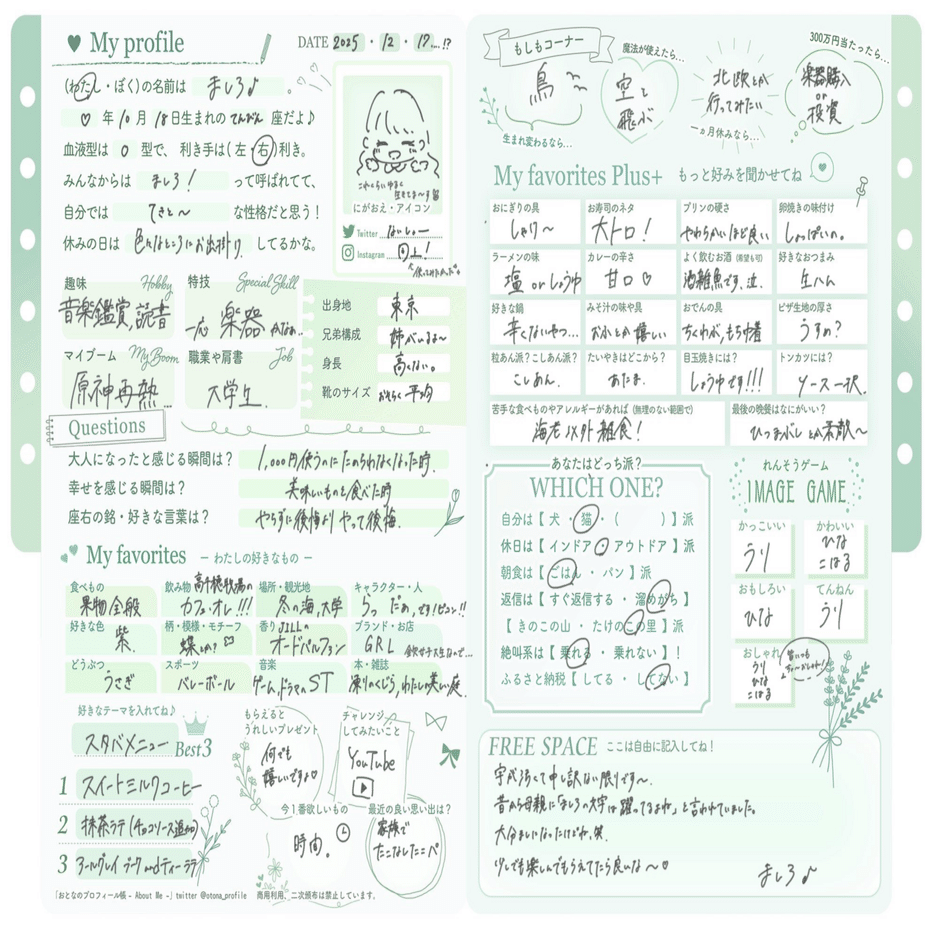 My profile
DATE 2025・12・17...!?
(わたし・ぼく)の名前は ましろ♪ 。
♡ 年 10 月 18 日生まれの てんびん 座だよ♪
血液型は O 型で、 利き手は( 左・右 )利き。
みんなからは ましろ! って呼ばれてて、
自分では てきと〜 な性格だと思う!
休みの日は 色んなところにお出掛け してるかな。
これくらいゆるく
生きてま〜す
にがおえ・アイコン
Twitter
Instagram 同上!
趣味 Hobby
音楽鑑賞,読書
特技 Special Skill
一応 楽器 かなぁ..
マイブーム My Boom
原神再熱...
職業や肩書 Job
大学生.
出身地 東京
兄弟構成 姉がいるよ〜
身長 高くない。
靴のサイズ おそらく平均
Questions
大人になったと感じる瞬間は? 1,000円使うのにためらわなくなった時.
幸せを感じる瞬間は? 美味しいもの食べた時
座右の銘・好きな言葉は? やらずに後悔よりやって後悔.
My favorites ー わたしの好きなもの ー
食べもの 果物全般
飲み物 高千穂牧場の カフェ・オレ!!!
場所・観光地 冬の海,大学
キャラクター・人
好きな色 紫.
柄・模様・モチーフ 蝶とか?
香り JILLの オードパルファン
ブランド・お店 GRL
どうぶつ うさぎ
スポーツ バレーボール
音楽 ゲーム,ドラマのST
本・雑誌 凍りのくじら,わたしの美しい庭.
好きなテーマを入れてね♪
スタバメニュー Best3
1 スイートミルクコーヒー
2 抹茶ラテ(チョコソース追加)
3 アールグレイ ブーケ and ティーラテ
もらえると
うれしいプレゼント
何でも
嬉しいですよ♡
チャレンジ
してみたいこと
YouTube
今1番欲しいもの
時間。
最近の良い思い出は?
家族で
たこなしたこパ
「おとなのプロフィール帳 - About Me -」twitter @otona_profile 商用利用、二次頒布は禁止しています。
もしもコーナー
鳥〜
生まれ変わるなら...
魔法が使えたら...
空を
飛ぶ
北欧とか
行ってみたい
一ヵ月休みなら...
300万円当たったら...
楽器購入
or
投資
My favorites Plus+ もっと好みを聞かせてね
おにぎりの具 しゃけ〜
お寿司のネタ 大トロ!
プリンの硬さ やわらかいほど良い
卵焼きの味付け しょっぱいの。
ラーメンの味 塩 or しょうゆ
カレーの辛さ 甘口♡
よく飲むお酒(希望も可) 酒雑魚です,泣.
好きなおつまみ 生ハム
好きな鍋 辛くないやつ...
みそ汁の味や具 おふとか嬉しい
おでんの具 ちくわぶ,もち巾着
ピザ生地の厚さ うすめ?
粒あん派?こしあん派? こしあん.
たいやきはどこから? あたま.
目玉焼きには? しょうゆです!!!
トンカツには? ソース一択.
苦手な食べものやアレルギーがあれば(無理のない範囲で)
海老以外雑食!
最後の晩餐はなにがいい?
ひつまぶしとか素敵〜
あなたはどっち派?
WHICH ONE?
自分は【 犬 ・ 猫 ・ ( ) 】派
休日は【 インドア ・ アウトドア 】派
朝食は【 ごはん ・ パン 】派
返信は【 すぐ返信する ・ 溜めがち 】
【 きのこの山 ・ たけのこの里 】派
絶叫系は【 乗れる ・ 乗れない 】!
ふるさと納税【 してる ・ してない 】
れんそうゲーム
IMAGE GAME
かっこいい
うり
かわいい
ひな
こはる
おもしろい
ひな
てんねん
うり
おしゃれ
うり
ひな
こはる
FREE SPACE ここは自由に記入してね!
字が汚くて申し訳ない限りです〜.
昔から母親に「ましろの文字は躍ってるよね」と言われていました。
大分ましになったけどね.笑.
少しでも楽しんでもらえてたら良いな〜♡
ましろ♪